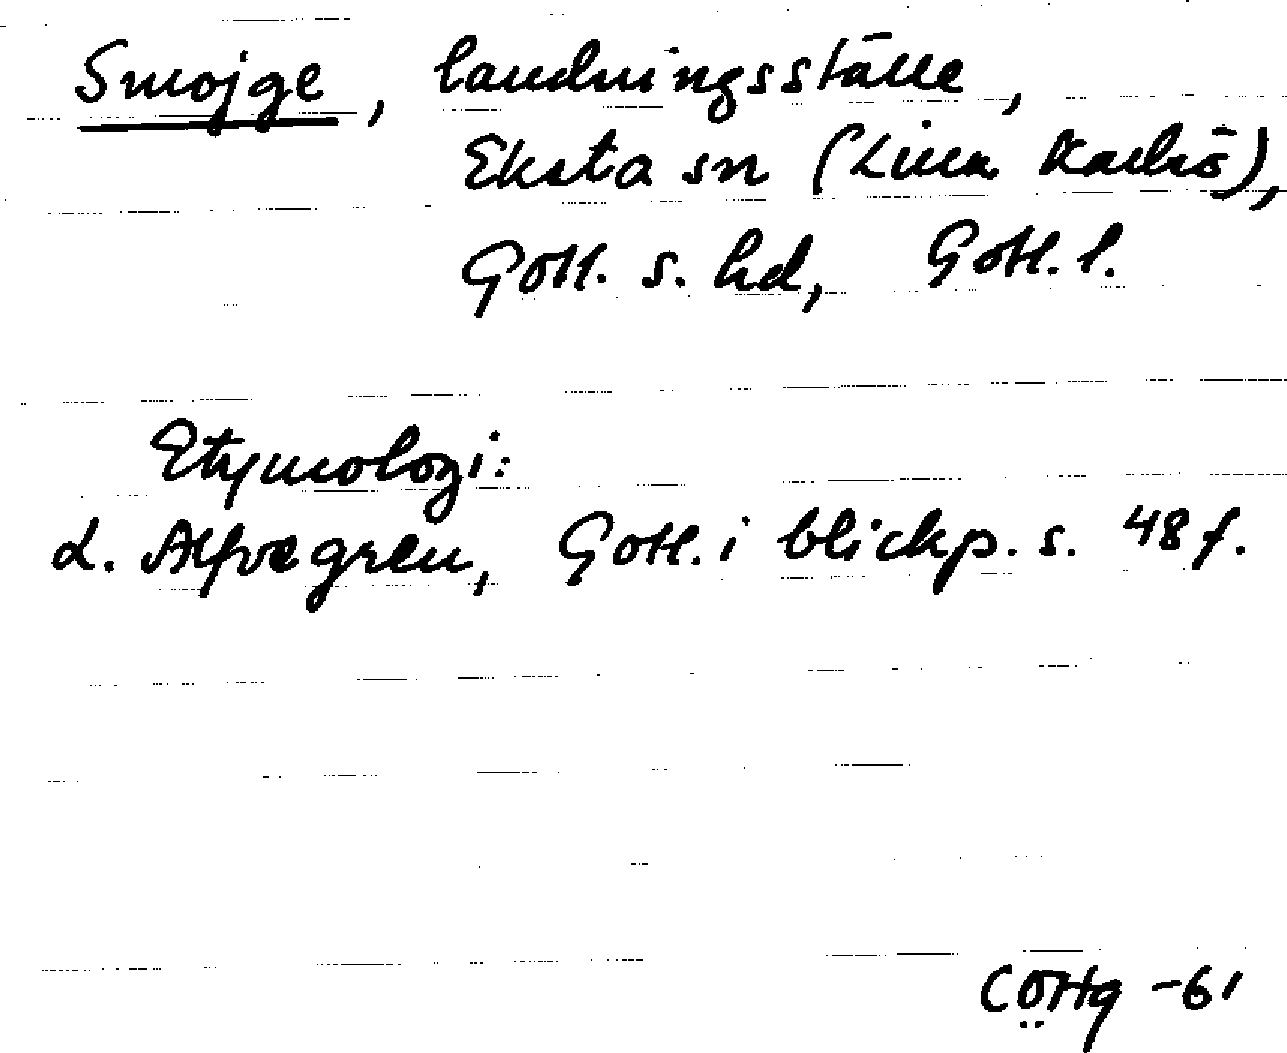 Smojge, landningsställe,
Eksta sn (Lilla Karlsö),
Gotl. s. hd, Gotl. l.
Etymologi:
L. Alfvegren, Gotl. i blickp. s. 48 f.
-61